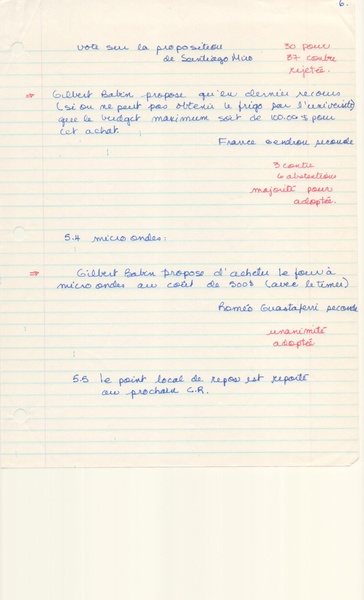 6.
vote sur la proposition 30 pour
de Santiago 37 contre
rejetée.
⇒ Gilbert Babin propose qu'en dernier recours
(si on ne peut pas obtenir le frigo par l'université)
que le budget maximum soit de 100.00 $ pour
cet achat.
France Gendron seconde
3 contre
6 abstentions
majorité pour
adoptée.
5.4 micro ondes:
⇒ Gilbert Babin propose d'acheter le four à
micro ondes au coût de 300$ (avec le timer)
Roméo Guastaferri seconde
unanimité
adoptée
5.5 le point local de repos est reporté
au prochain C.R.